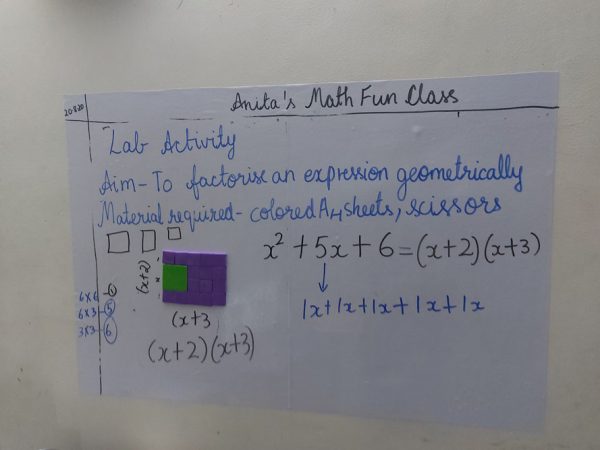 20.8.20
Anita's Math Fun Class
Lab Activity
Aim- To factorise an expression geometrically
Material required- colored A4 sheets, scissors
x² + 5x + 6 = (x+2)(x+3)
1x+1x+1x+1x+1x
(x+2)
6×6-
6×3-5
3×3-6
(x+3
(x+2)(x+3)